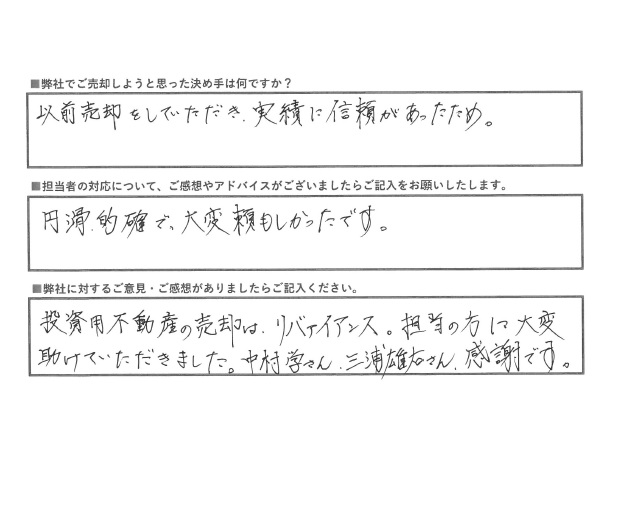 ■弊社でご売却しようと思った決め手は何ですか？
以前売却をしていただき、実績に信頼があったため。
■担当者の対応について、ご感想やアドバイスがございましたらご記入をお願いしたします。
円滑、的確で、大変頼もしかったです。
■弊社に対するご意見・ご感想がありましたらご記入ください。
投資用不動産の売却は、リバァイアンス。担当の方に大変
助けていただきました。中村学さん、三浦雄右さん、感謝です。